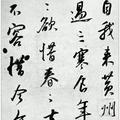 自我來黃州
過三寒食年
〻欲惜春〻
不容惜今年